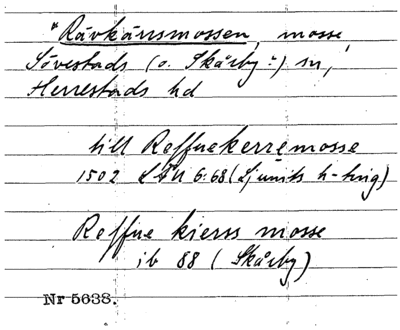 *Rävkärrsmossen, mosse,
Sövestads (o. Skårby?) sn,
Herrestads hd
till Reffuekerremosse
1502 LÄU 6:68 (Ljunits h-tvig)
Reffue kierss mosse
ib 88 (Skårby)
Nr 5638.